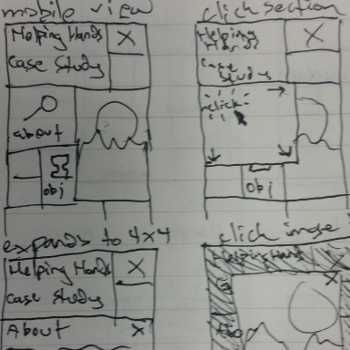 mobile view
Helping Hands
Case Study
X
about
obj
click section
Helping
Hands
Case
Study
X
click
obj
expands to 4x4
Helping Hands
Case Study
X
About
X
click image
Helping Hands
X